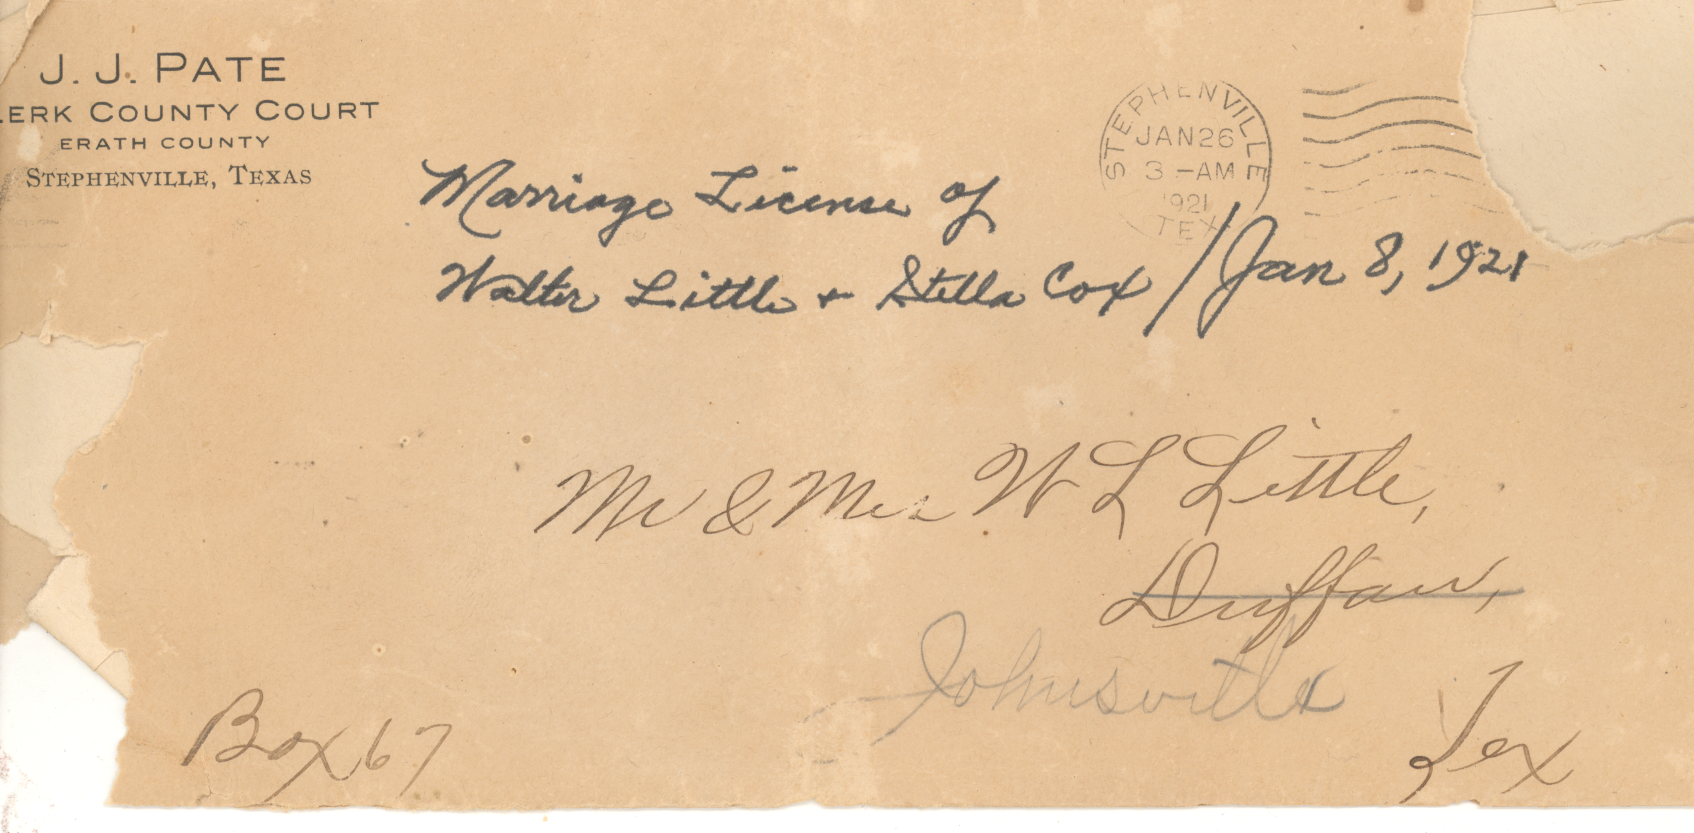 J. J. PATE
LERK COUNTY COURT
ERATH COUNTY
STEPHENVILLE, TEXAS
STEPHENVILLE
JAN 26
3 -AM
1921
TEX
Marriage License of
Walter Little + Stella Cox / Jan 8, 1921
Mr & Mrs W L Little,
Duffau,
Johnsville
Tex
Box 67